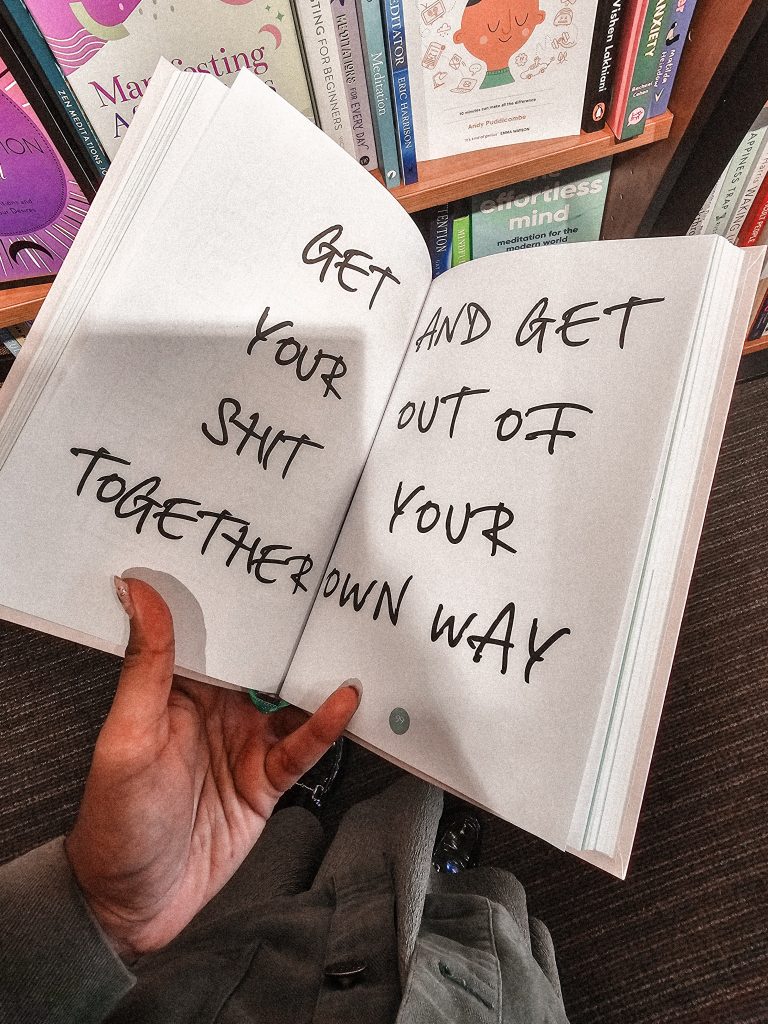 GET
YOUR
SHIT
TOGETHER
AND GET
OUT OF
YOUR
OWN WAY
99
Manifesting
ZEN MEDITATIONS
MEDITATIONS FOR EVERY DAY
Meditation
ERIC HARRISON
10 minutes can make all the difference
Andy Puddicombe
EMMA WATSON
Vishen Lakhiani
ANXIETY
effortless
mind
meditation for the
modern world
HAPPINESS TRAP
WAKING